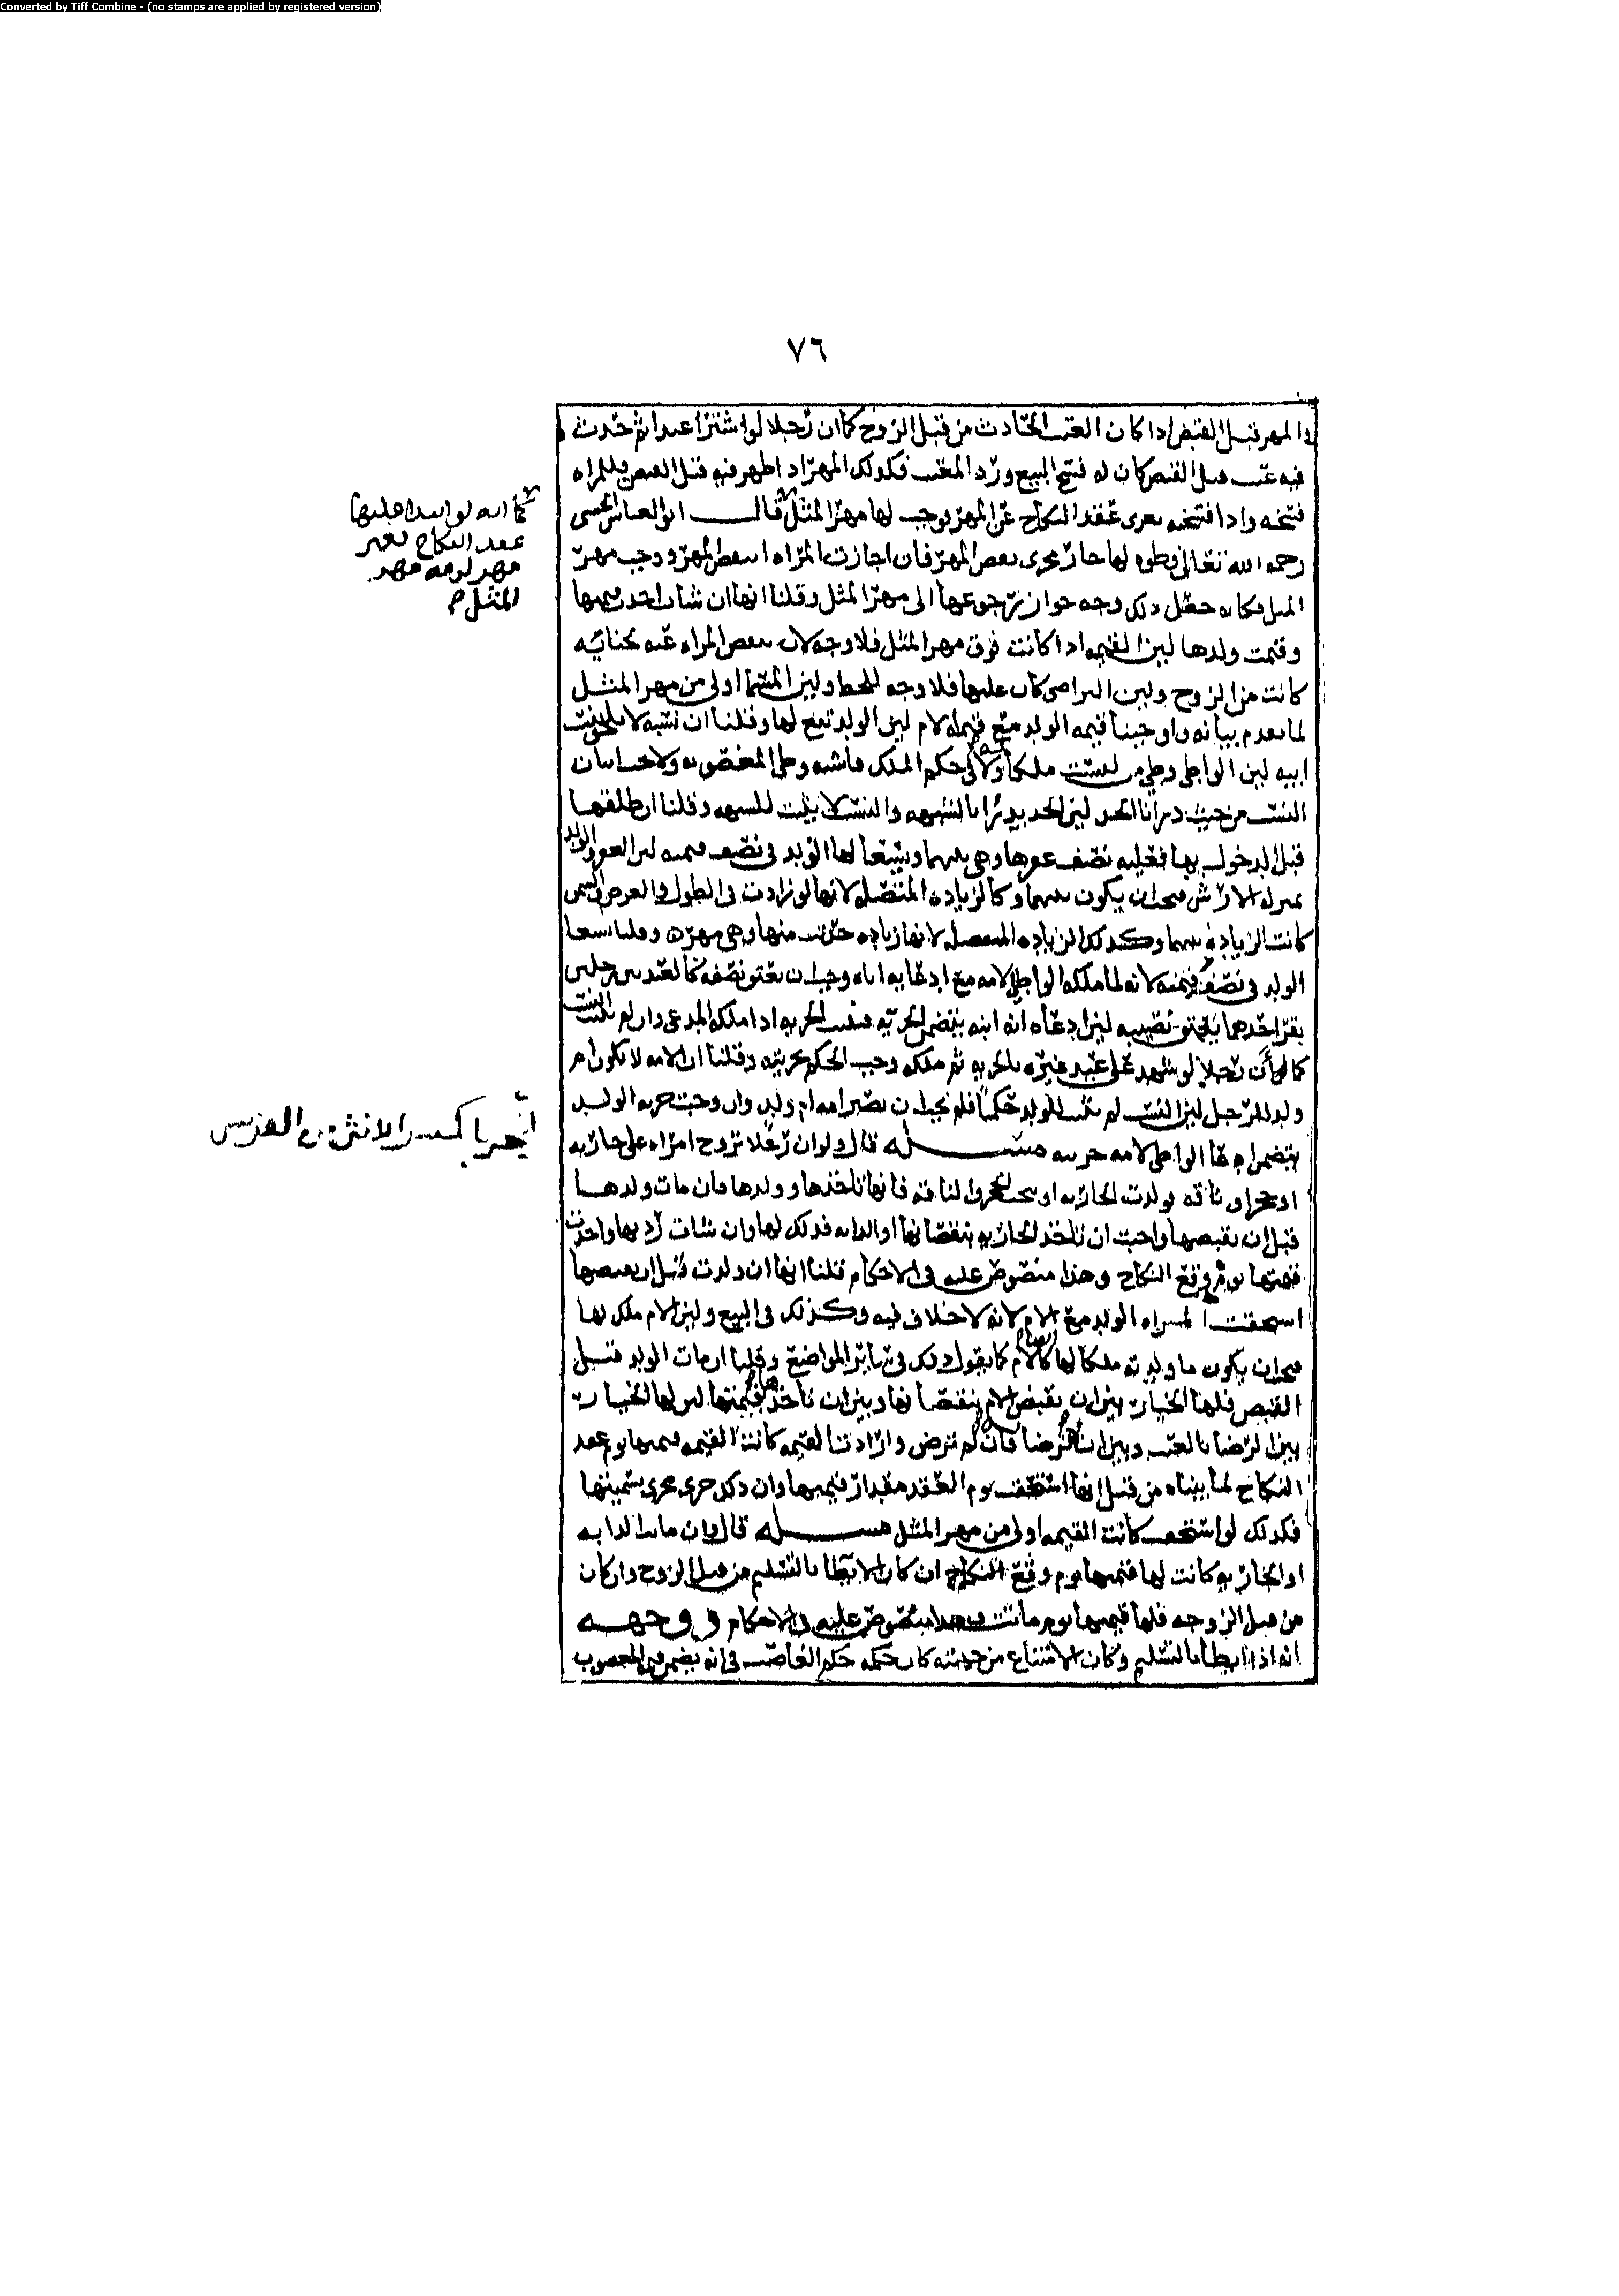 Converted by Tiff Combine - (no stamps are applied by registered version)
٧٦
المهر قبل القبض اذا كان العيب الحادث من قبل الزوج كما ان رجلا لو اشترا عبدا ثم حدث
فيه عيب قبل القبض كان له فسخ البيع ورد المعيب فكذلك المهر اذا ظهر فيه قبل القبض فللمراه
فسخه واذا فسخته تعرى عقد النكاح عن المهر يوجب لها مهر المثل قال ابو العباس الحسني
رحمه الله تعالى وطوه لها جاز مجرى بعض المهر فان اجازت المراه بعض المهر ووجب مهر
المثل فكانه جعل ذلك وجه جواز رجوعها الى مهر المثل وقلنا انها ان شات اخذت قيمتها
وقيمت ولدها لين القيمه اذا كانت فوق مهر المثل فلا وجه لان المراه عنه بجنايه
كانت من الزوج ولين التراضي كان عليها فلا وجه للحط ولين المسما اولى من مهر المثل
لما تقدم بيانه واوجبنا قيمه الولد مع قيمه الام لين الولد تبع لها وقلنا ان نسبه لا يلحق بنسب
ابيه لين الواطي وطي من ليست ملكا له ولا في حكم الملك فاشبه وطي المغصوبه ولا
النسب من حيث درانا الحد لين الحد يدرا بالشبهه والنسب لا يثبت للشبهه وقلنا ان طلقها
قبل الدخول بها فعليه نصف عقرها وهي بينهما ويستسعا لها الولد في نصف قيمته لين العقر والولد
بمنزله الارش فيجب ان يكون بينهما وكالزياده المتصله لانها لو زادت في الطول والعرض والسمن
كانت الزياده بينهما وكذلك الزياده المنفصله لانها زياده حدثت منها وهي مهره وقلنا يسعا
الولد في نصف قيمته لانه لما ملكه الواطي للامه مع ادعايه اياه وجب ان يعتق نصفه كالعبد بين رجلين
يقر احدهما بعتق نصيبه لين ادعاه انه ابنه يتضمن الحريه فيثبت الحريه اذا ملكه المدعي وان لم يثبت النسب
كما لو ان رجلا لو شهد على عبد غيره بالحريه ثم ملكه وجب الحكم بحريته وقلنا ان الامه لا تكون ام
ولد للرجل لين النسب لم يثبت للولد حكما فلم يجب ان تصير امه ام ولد وان وجبت حريه الولد
بتضمن ادعا الواطي لامه حريته مسله قال ولو ان رجلا تزوج امراه على جاريه
او حجرا او ناقه فولدت الجاريه او نتجت الحجر والناقه فانها تاخذها وولدها فان مات ولدها
قبل ان يقبضها واحبت ان تاخذ الجاريه بنقصانها او الدابه فذلك لها وان شات رد بها واخذت
قيمتها يوم وقع النكاح وهذا منصوص عليه في الاحكام قلنا انها ان ولدت قبل ان يقبضها
استحقت المراه الولد مع الام لانه لا خلاف فيه وكذلك في البيع ولين الام ملك لها
فيجب ان يكون ما ولدته ملكا لها كالام كما يقول ذلك في ساير المواضع وقلنا ان مات الولد قبل
القبض فلها الخيار بين ان يقبض الام بنقصانها وبين ان تاخذ قيمتها لين لها الخيار
بين الرضا بالعيب وبين ان لا ترضا فان لم ترض وارادت القيمه كانت القيمه قيمتها يوم عقد
النكاح لما بيناه من قبل انها استحقت يوم العقد مقدار قيمتها وان ذلك جرى مجرى تسميتها
فكذلك لو استحقت كانت القيمه اولى من مهر المثل مسله قال وان ماتت الدابه
او الجاريه كانت لها قيمتها يوم وقع النكاح ان كان الابطا بالتسليم من قبل الزوج وان كان
من قبل الزوجه فلها قيمتها يوم ماتت وهذا منصوص عليه في الاحكام ووجهه
انه اذا ابطا بالتسليم وكان الامتناع من جهته كان حكمه حكم الغاصب في انه يضمن قيمه المغصوب
كما انه لو ابتدا عليها
عقد النكاح بغير
مهر لزمه مهر
المثل
الانثى من الفرس